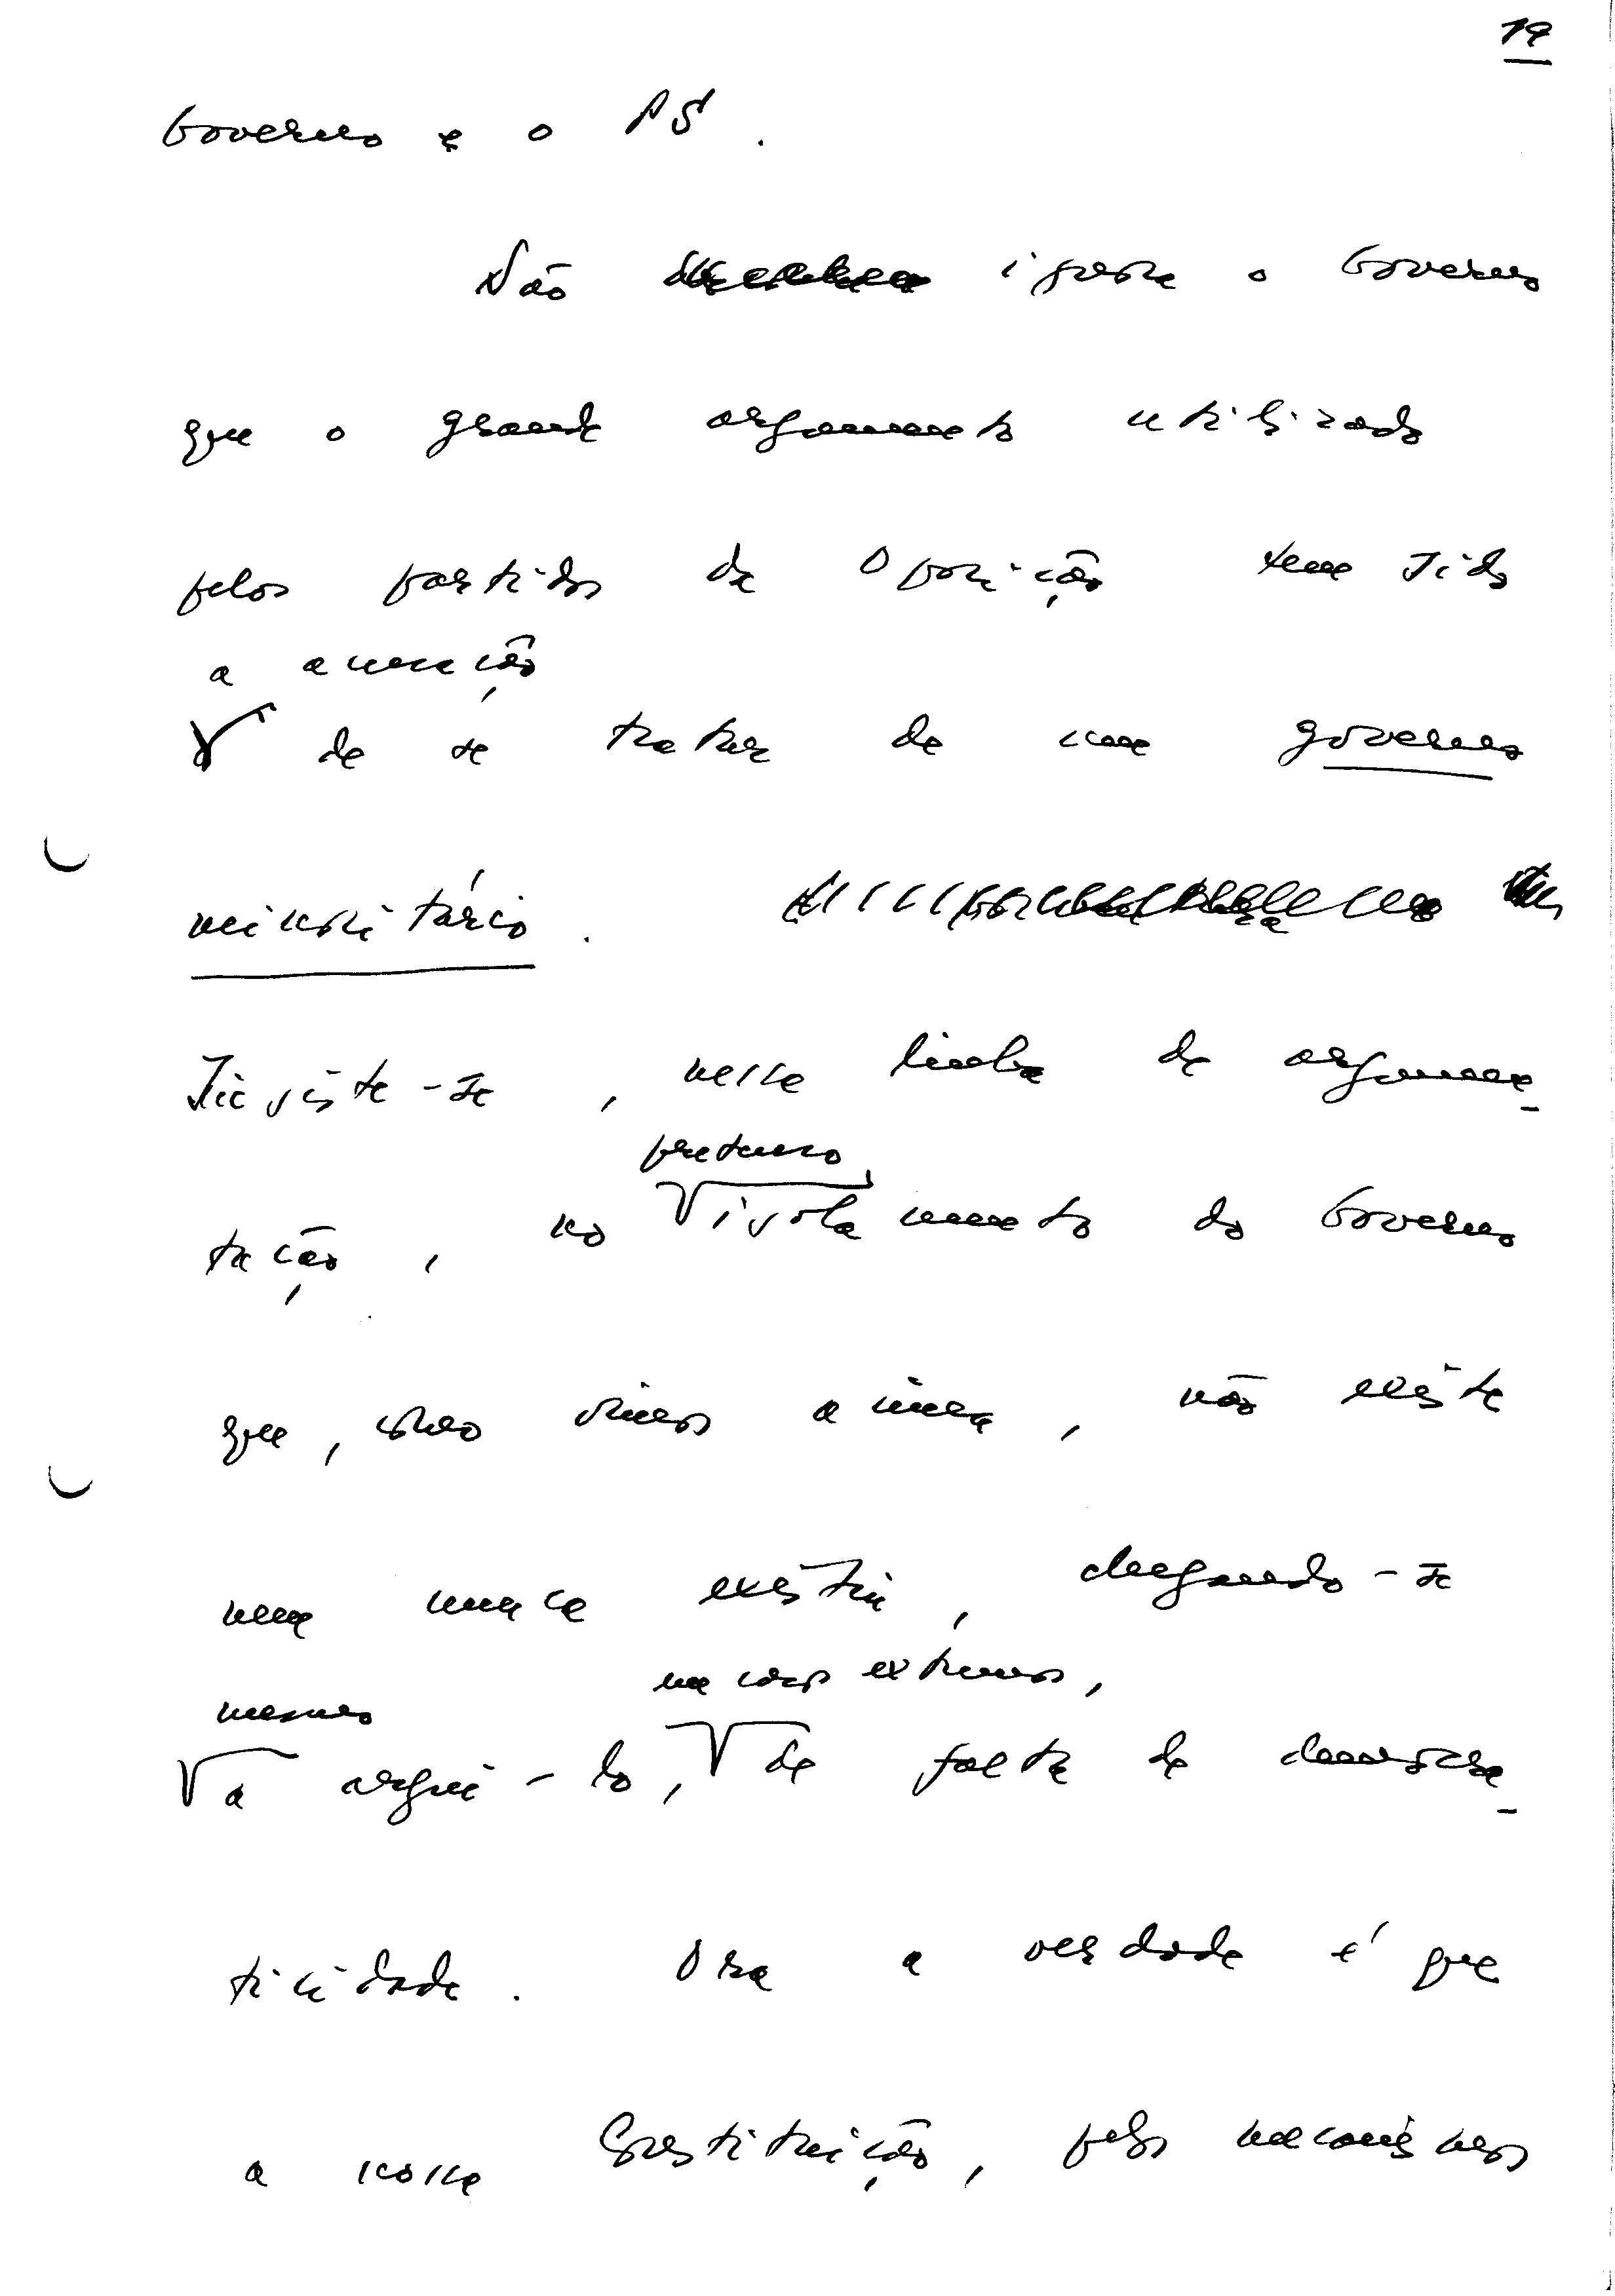 19
Governo e o PS.
Não ignora o Governo
que o grande argumento utilizado
pelos partidos da Oposição tem sido
a acusação
de se tratar de um governo
minoritário.
Insiste-se, nessa linha de argumen-
pretenso
tação, no isolamento do Governo
que, como vimos acima, não existe
nem nunca existiu, chegando-se
mesmo em casos extremos,
a argui-lo, de falta de democra-
ticidade. Ora a verdade é que
a nossa Constituição, pelos mecanismos